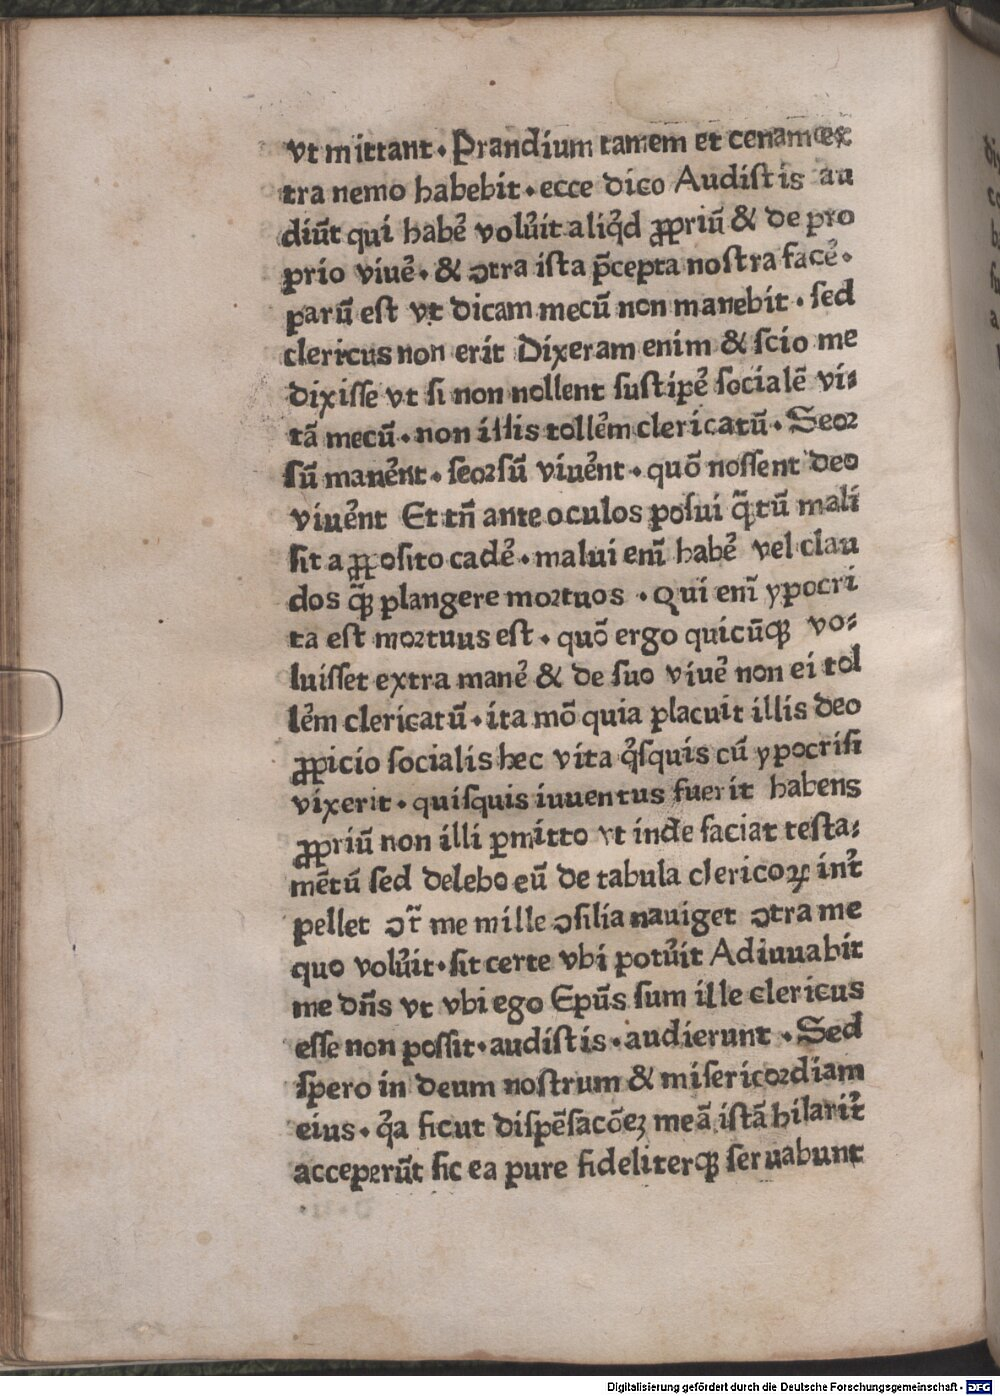 vt mittant. Prandium tamem et cenam ex
tra nemo habebit. ecce dico Audistis au
diūt qui habē volūit aliq̉d ꝓpriū & de pro
prio viuē. & ↄtra ista p̄cepta nostra facē.
parū est vt dicam mecū non manebit. sed
clericus non erit Dixeram enim & scio me
dixisse vt si non nollent sustipē socialē vi⸗
tā mecū. non illis tollēm clericatū. Seor
sū manēnt. seorsū viuēnt. quō nossent deo
viuēnt Et tn̄ ante oculos posui q̄tū mali
sit a ꝓposito cadē. malui eni̅ habē vel clau
dos q̄ꝫ plangere mortuos . Qui eni̅ ypocri
ta est mortuus est. quō ergo quicūqꝫ vo⸗
luisset extra manē & de suo viuē non ei tol
lēm clericatū. ita mō quia placuit illis deo
ꝓpicio socialis hec vita q̉squis cū ypocrisi
vixerit. quisquis iuuentus fuerit habens
ꝓpriū non illi ꝑmitto vt inde faciat testa⸗
mētū sed delebo eū de tabula clericoꝝ int̉
pellet ↄt̄ me mille ↄsilia nauiget ↄtra me
quo volūit. sit certe vbi potūit Adiuuabit
me dn̄s vt vbi ego Epūs sum ille clericus
esse non possit. audistis. audierunt . Sed
spero in deum nostrum & misericordiam
eius. q̉a sicut dispēsacōeꝫ meā istā hilarit̉
acceperūt sic ea pure fideliterqꝫ seruabunt
Digitalisierung gefördert durch die Deutsche Forschungsgemeinschaft - DFG